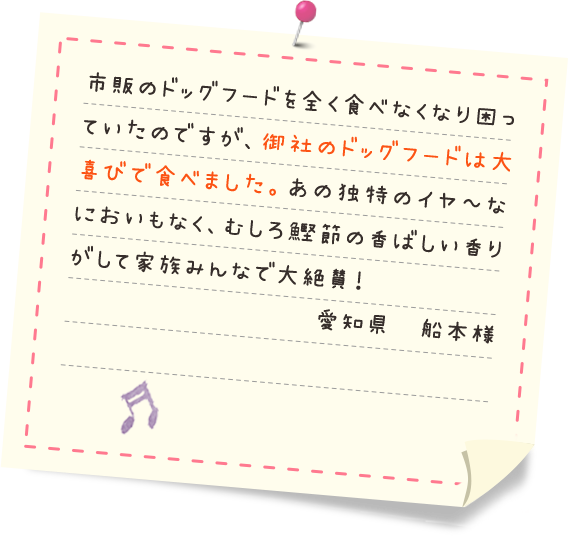 市販のドッグフードを全く食べなくなり困っ
ていたのですが、御社のドッグフードは大
喜びで食べました。あの独特のイヤ～な
においもなく、むしろ鰹節の香ばしい香り
がして家族みんなで大絶賛！
愛知県　船本様